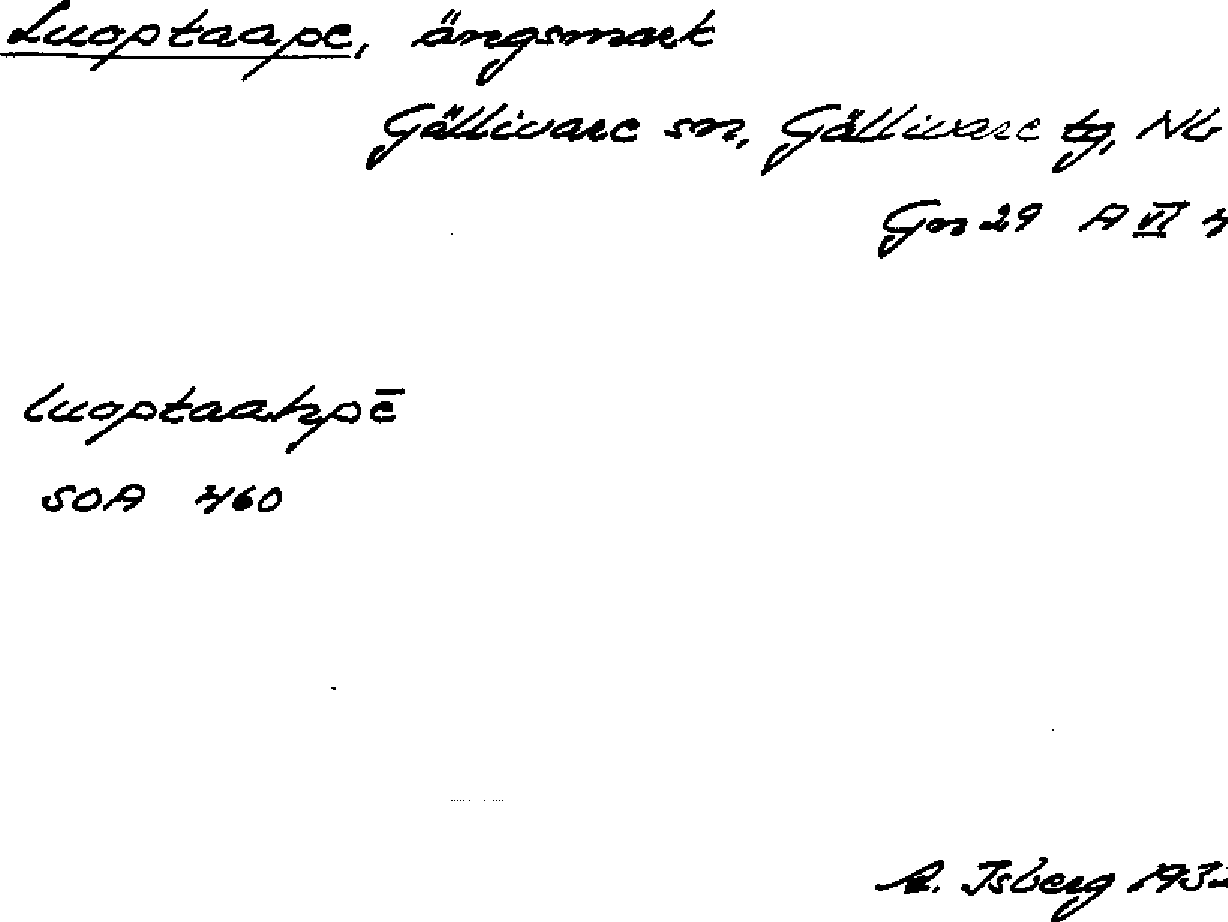 Luoptaape, ängsmark
Gällivare sn, Gällivare tg, Nb
Gn 29 A VI 4
luoptaahpē
SOA 460
A. Isberg 1932